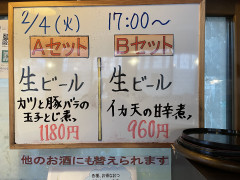 2/4(火) 17:00〜
Aセット
生ビール
ガツと豚バラの
玉子とじ煮。
1180円
Bセット
生ビール
イカ天の甘辛煮。
960円
他のお酒にも替えられます